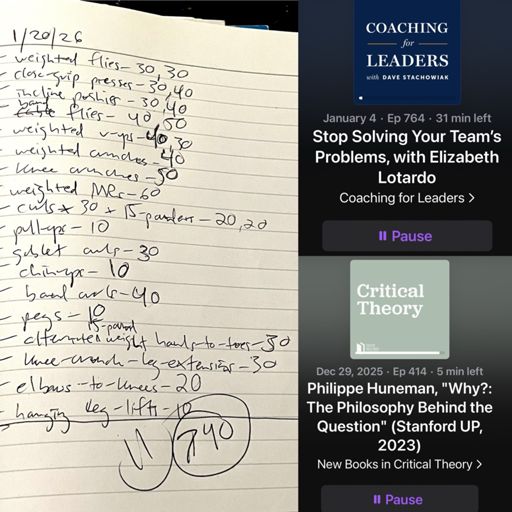 1/20/26
- weighted flies - 30, 30
- close-grip presses - 30, 40
- incline pushups - 30, 40
- band flies - 40, 50
- weighted v-ups - 40 30
- weighted crunches - 40
- knee crunches - 50
- weighted MRs - 60
- curls x 30 x 15-pounders - 20, 20
- pull-ups - 10
- goblet curls - 30
- chin-ups - 10
- band curls - 40
- pegs - 10
- alternated 15-pound weight hands-to-toes - 30
- knee-crunch-leg-extensions - 30
- elbows-to-knees - 20
- hanging leg-lifts - 10
740
COACHING
for
LEADERS
with DAVE STACHOWIAK
January 4 · Ep 764 · 31 min left
Stop Solving Your Team's
Problems, with Elizabeth
Lotardo
Coaching for Leaders >
Pause
Critical
Theory
Dec 29, 2025 · Ep 414 · 5 min left
Philippe Huneman, "Why?:
The Philosophy Behind the
Question" (Stanford UP,
2023)
New Books in Critical Theory >
Pause